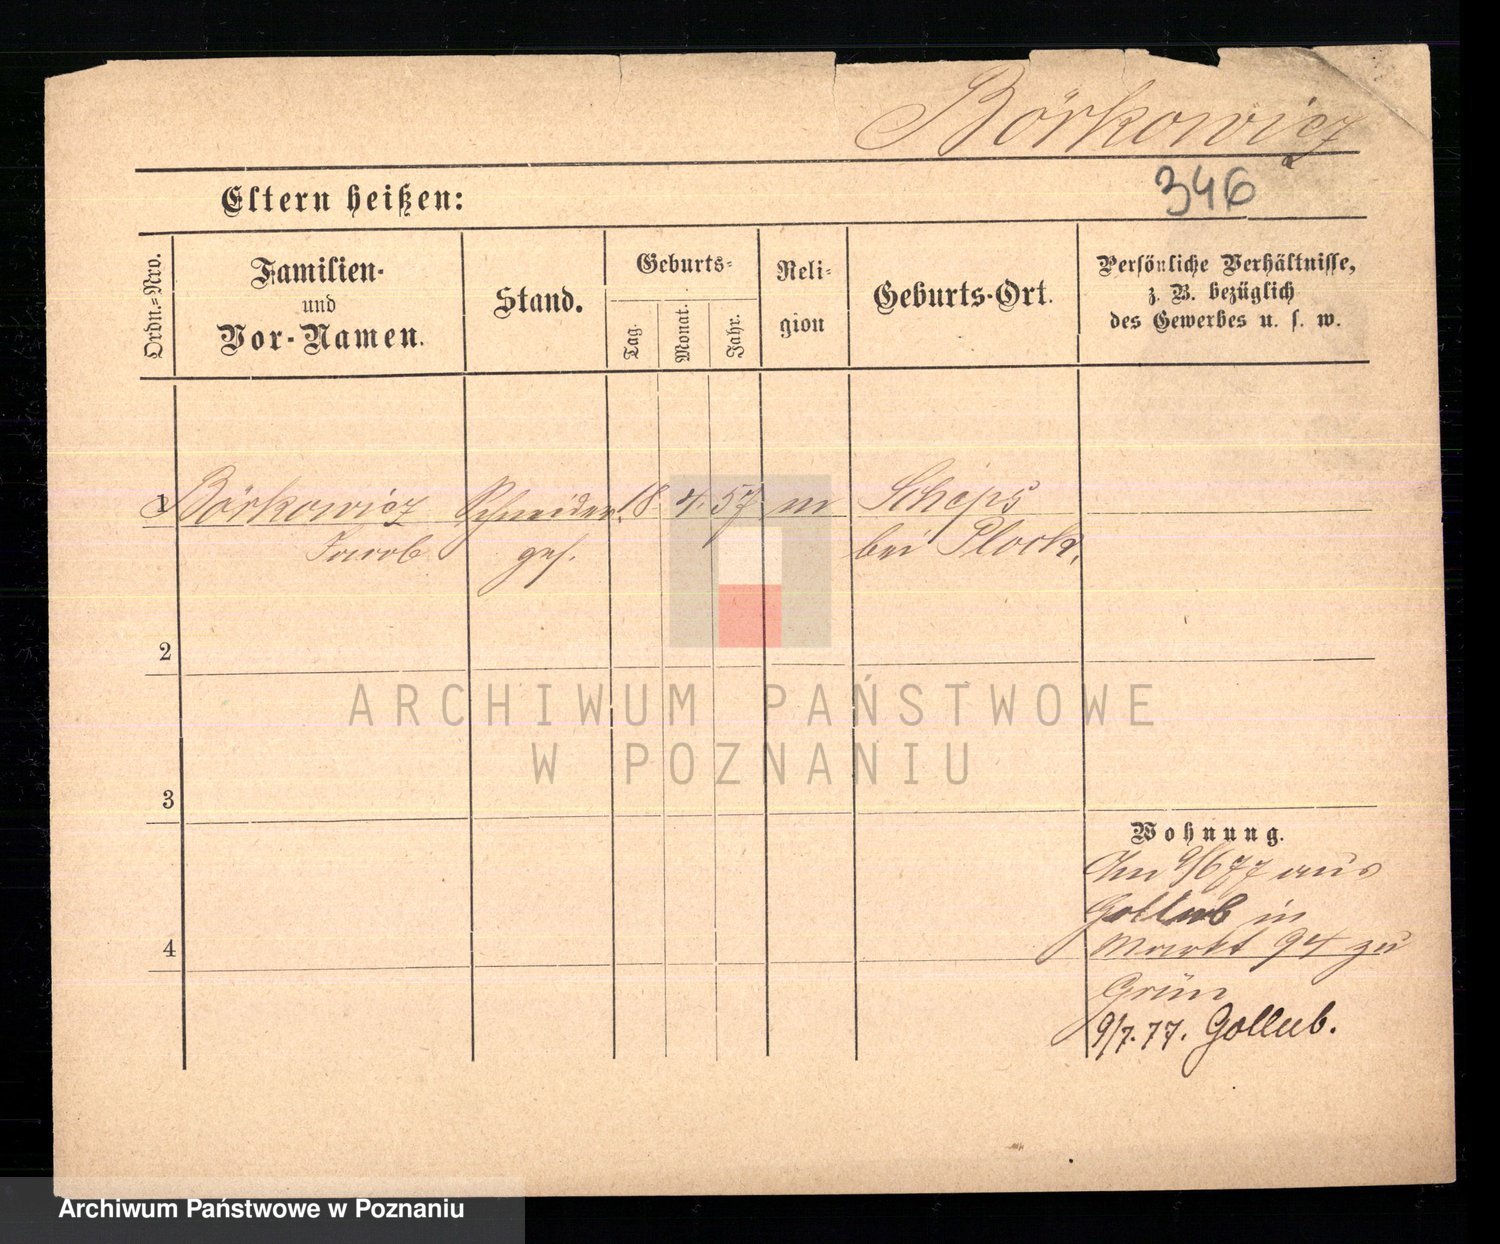 Börkowicz
346
Eltern heißen:
Ordn.=Nro.
Familien-
und
Vor-Namen.
Stand.
Geburts-
Tag.
Monat.
Jahr.
Reli-
gion
Geburts-Ort.
Persönliche Verhältnisse,
z. B. bezüglich
des Gewerbes u. s. w.
1 Börkowicz Schneider 18. 4. 57 m
Jacob ges. bei Plock.
2
3
4
Wohnung.
Am 9/6 77 aus
Gollub in
Markt 94 zu
Grün
9/7. 77. Gollub.
ARCHIWUM PAŃSTWOWE
W POZNANIU
Archiwum Państwowe w Poznaniu